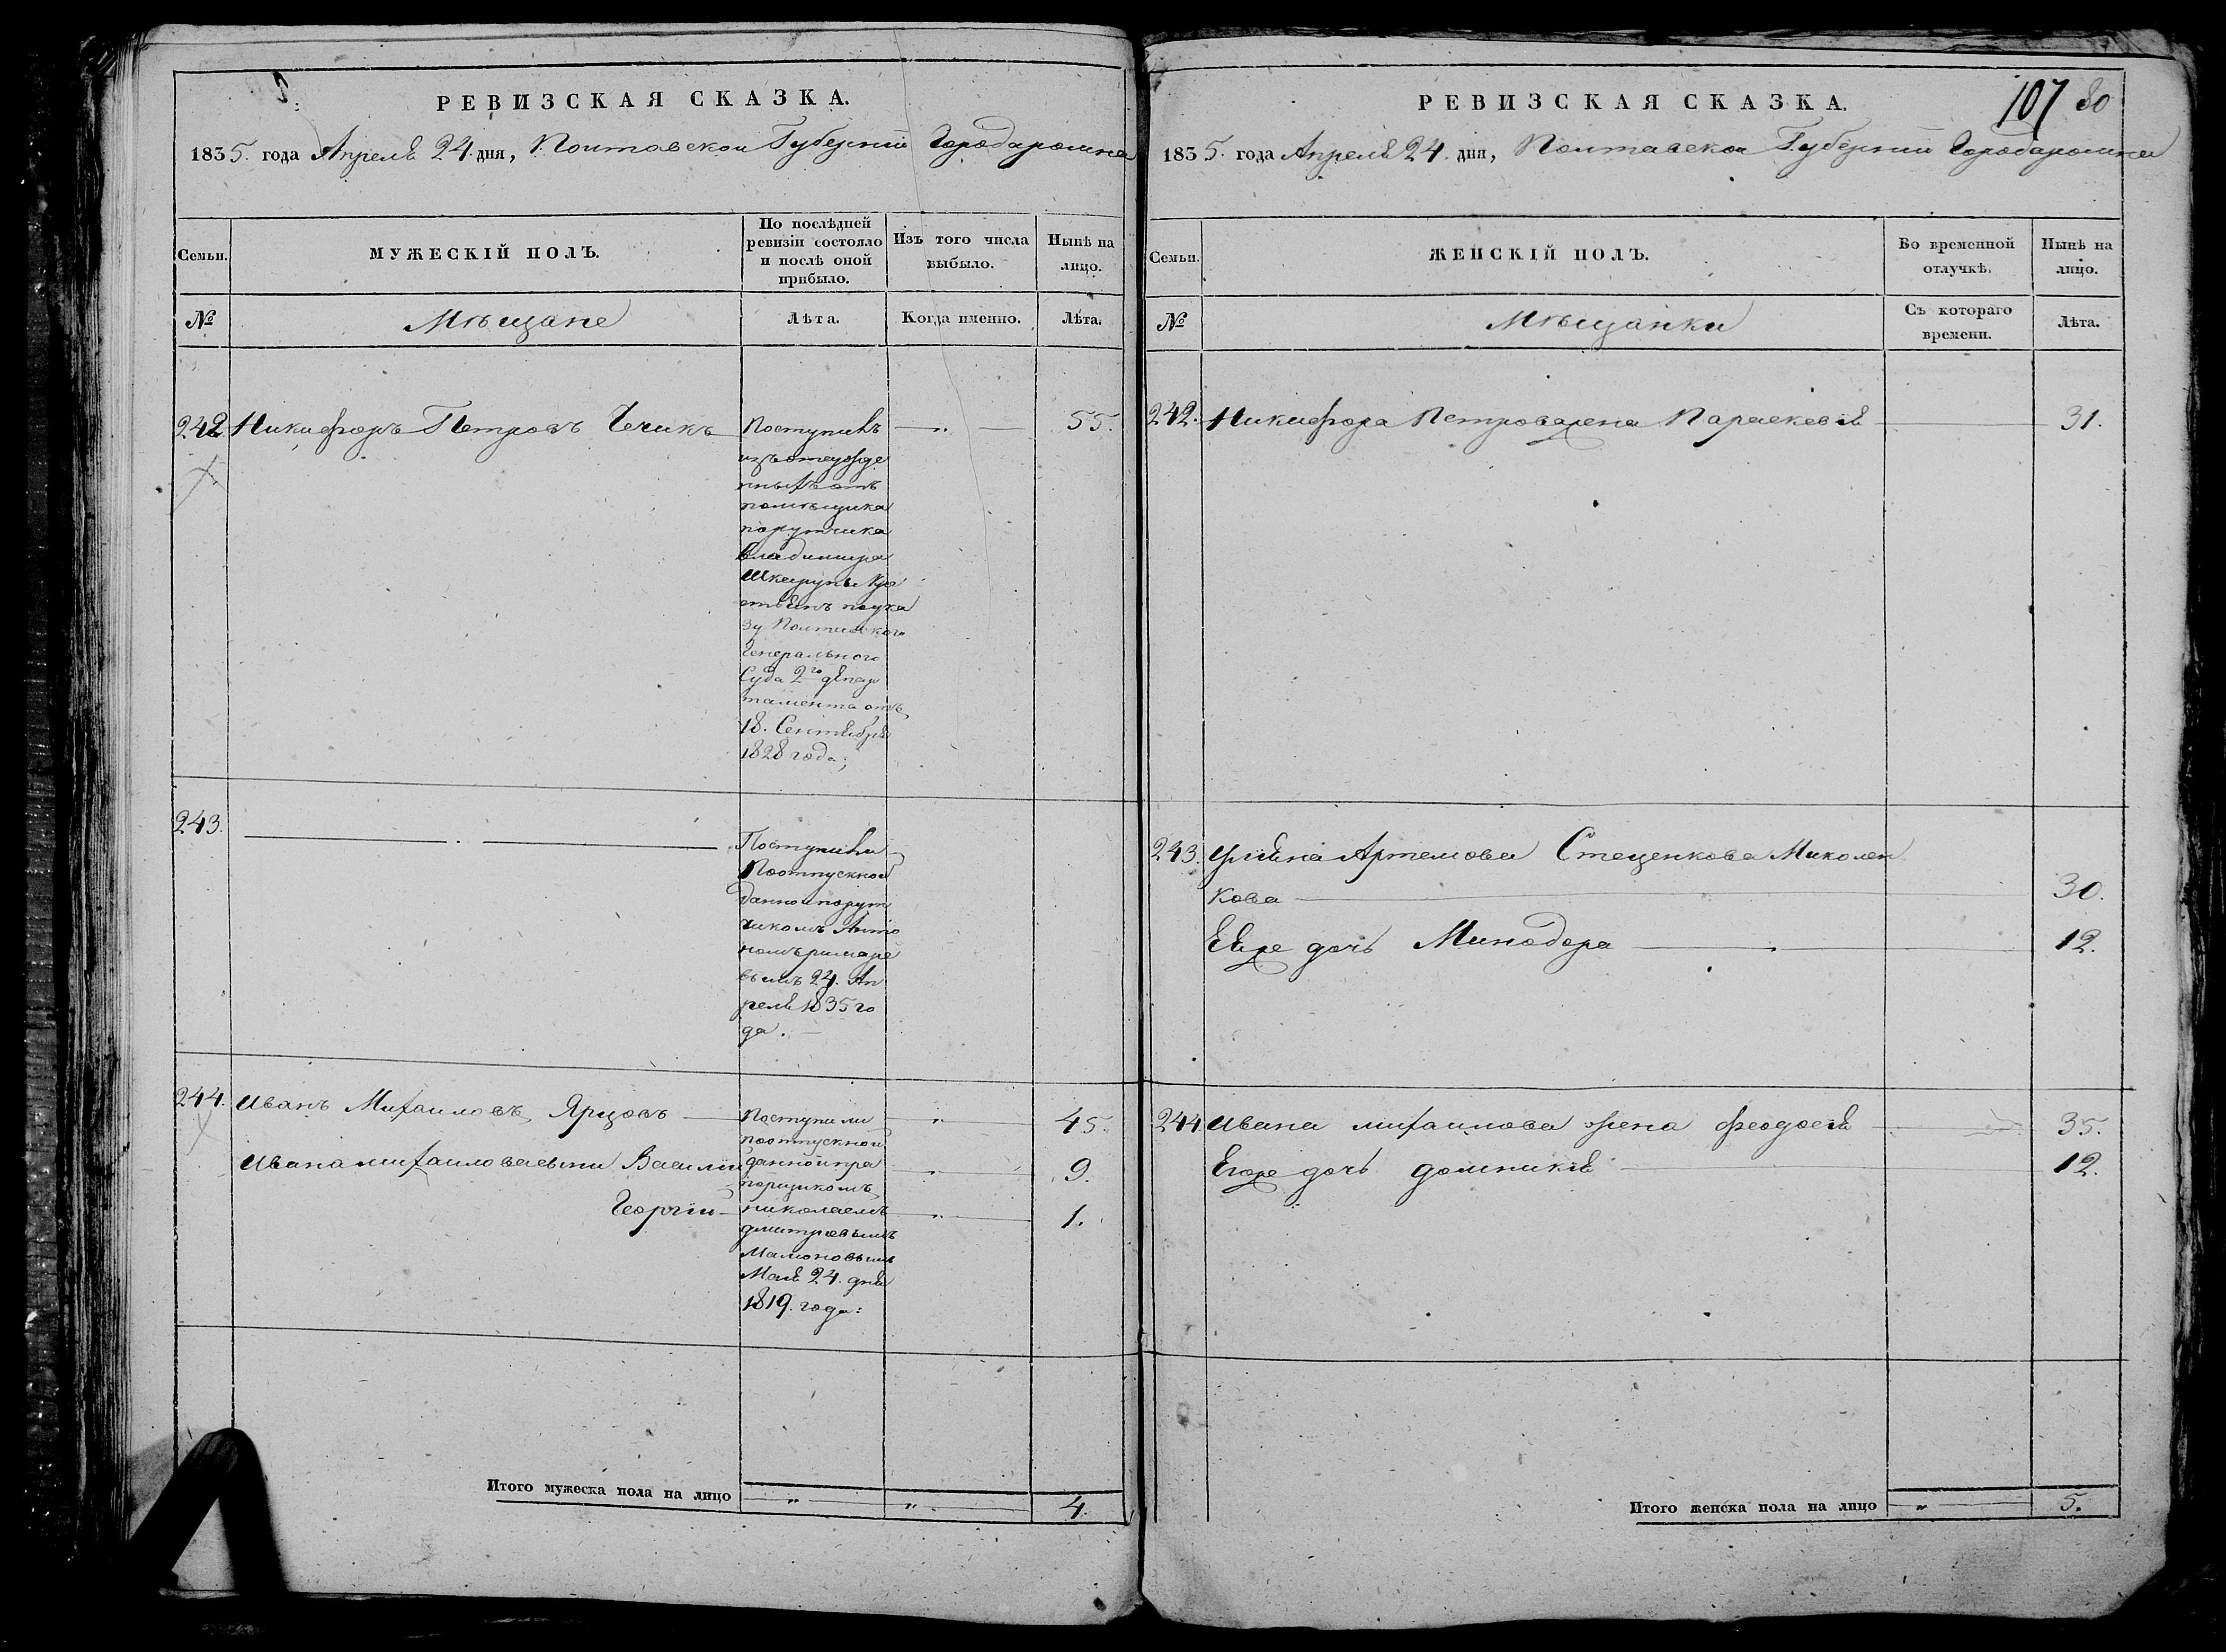 РЕВИЗСКАЯ СКАЗКА.
1835. года Апреля 24. дня, Полтавской Губернии Города Ромна
Семьи.
МУЖЕСКІЙ ПОЛЪ.
По послѣдней
ревизіи состояло
и послѣ оной
прибыло.
Изъ того числа
выбыло.
Нынѣ на
лицо.
№
Мѣщане
Лѣта.
Когда именно.
Лѣта.
242 Никифоръ Петровъ Чечикъ
55.
Поступилъ
изъ отсужде
нныхъ отъ
помѣщика
порутчика
Владимира
Шкеруны Кре
стьянъ по ука
зу Полтавского
Генерального
Суда 2го депар
тамента отъ
18. Сентября
1828 года;
243.
Поступили
По отпускной
данной порут
чикомъ Анто
номъ римаре
вымъ 24. Ап
реля 1835 го
да.
244. Иванъ Михаиловъ Ярцовъ
45.
Ивана михаилова сыни Василий
9.
Георгии
1.
Поступили
по отпускной
данной пра
порщикомъ
николаемъ
дмитревымъ
Мамоновымъ
Мая 24. дня
1819. года:
Итого мужеска пола на лицо
4.
РЕВИЗСКАЯ СКАЗКА.
107 80
1835. года Апреля 24. дня, Полтавской Губернии Города Ромна
Семьи.
ЖЕНСКІЙ ПОЛЪ.
Во временной
отлучкѣ.
Нынѣ на
лицо.
№
Мѣщанки
Съ котораго
времени.
Лѣта.
242. Никифора Петрова жена Параскевія
31.
243. Ульяна Артемова Стеценкова Миколен
кова
30.
Ея же дочь Минодора
12.
244 Ивана михаилова жена феодосия
35.
Его же дочь домникия
12.
Итого женска пола на лицо
5.